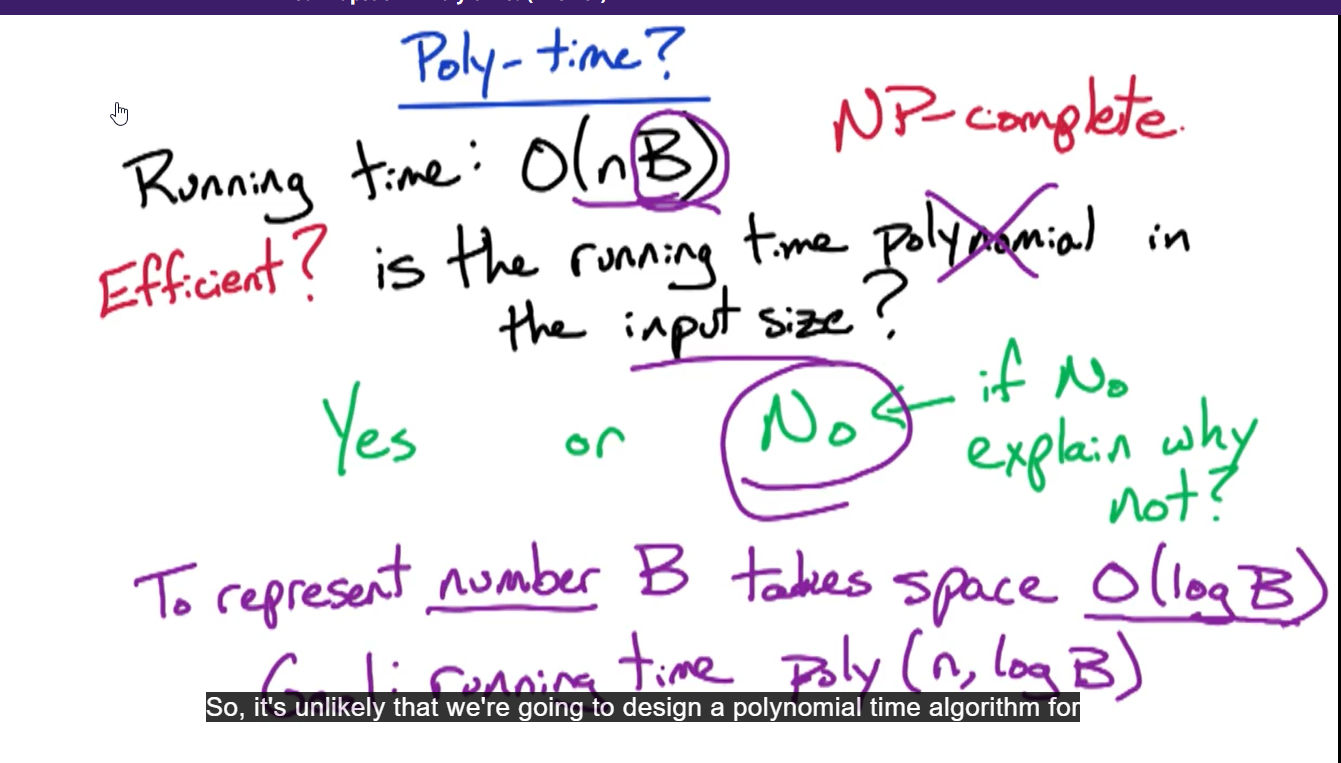 Poly-time?
NP-complete.
Running time: O(nB)
Efficient? is the running time polynomial in
the input size?
Yes or No ← if No
explain why
not?
To represent number B takes space O(log B)
Goal: running time poly(n, log B)
So, it's unlikely that we're going to design a polynomial time algorithm for